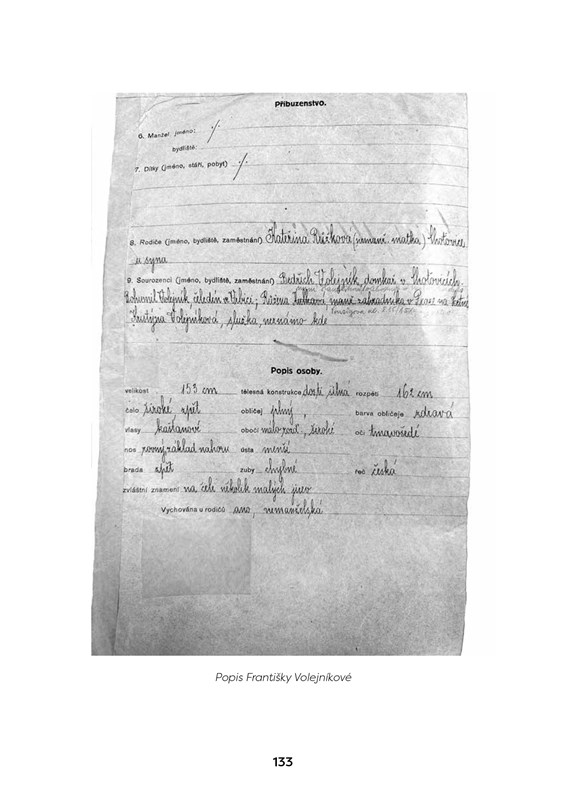 Příbuzenstvo.
6. Manžel, jméno: ·/·
bydliště:
7. Dítky (jméno, stáří, pobyt) ·/·
8. Rodiče (jméno, bydliště, zaměstnání) Kateřina Růžková (nemanž. matka) Lhotovice
u syna
9. Sourozenci (jméno, bydliště, zaměstnání) Bedřich Volejník, domkář v Lhotovicích,
Bohumil Volejník, čeledín, Růžena manž. zahradníka v Praze na
Kristýna Volejníková, služka, neznámo kde
Popis osoby.
velikost 153 cm tělesná konstrukce dosti silná rozpětí 162 cm
čelo široké zpět obličej plný, barva obličeje zdravá
vlasy kaštanové obočí malo rozď., široké oči tmavošedé
nos rovný základ nahoru ústa menší
brada zpět zuby chybné řeč česká
zvláštní znamení na čele několik malých jizev
Vychována u rodičů ano, nemanželská
Popis Františky Volejníkové
133